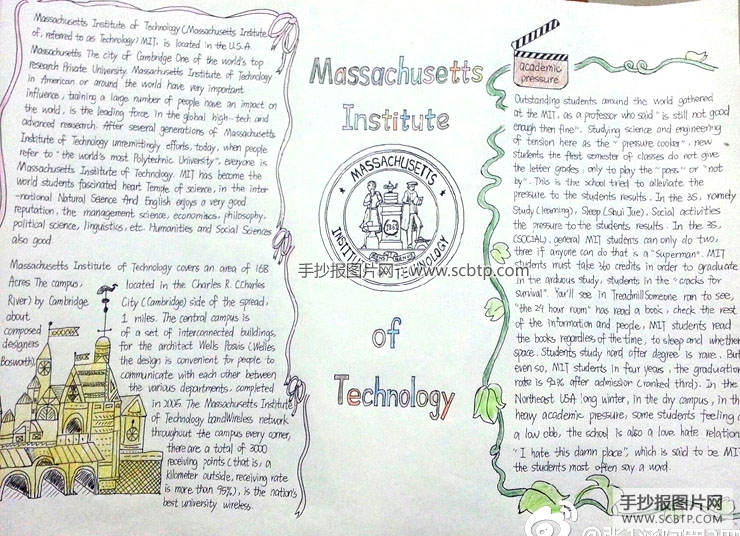 Massachusetts Institute of Technology (Massachusetts Institute
of, referred to as Technology) MIT, is located in the U.S.A.
Massachusetts The city of Cambridge One of the world's top
research Private University. Massachusetts Institute of Technology
in American or around the world have very important
influence, training a large number of people have an impact on
the world, is the leading force in the global high-tech and
advanced research. After several generations of Massachusetts
Institute of Technology unremittingly efforts, today, when people
refer to "the world's most Polytechnic University", everyone is
Massachusetts Institute of Technology. MIT has become the
world students fascinated heart Temple of science, in the inter
-national Natural Science And English enjoys a very good
reputation, the management science, economics, philosophy,
political science, linguistics, etc. Humanities and Social Sciences
also good
Massachusetts Institute of Technology covers an area of 168
Acres The campus, located in the Charles R. (Charles
River) by Cambridge City (Cambridge) side of the spread,
about 1 miles. The central campus is
composed of a set of interconnected buildings,
designers for the architect Wells Bosvis (Welles
Bosworth) the design is convenient for people to
communicate with each other between
the various departments, completed
in 2005. The Massachusetts Institute
of Technology LandWireless network
throughout the campus every corner,
there are a total of 3000
receiving points (that is, a
kilometer outside, receiving rate
is more than 95%), is the nation's
best university wireless.
Massachusetts
Institute
MASSACHUSETTS
INSTITUTE OF TECHNOLOGY
手抄报图片网 www.scbtp.com
of
Technology
academic
pressure
Outstanding students around the world gathered
at the MIT, as a professor who said "is still not good
enough then fine". Studying science and engineering
of tension here as the "pressure cooker", new
students the first semester of classes do not give
the letter grades, only to play the "pass" or "not
by". This is the school tried to alleviate the
pressure to the students results. In the 3S, namely
Study (learning), Sleep (Shui Jue), Social activities
the pressure to the students results. In the 3S,
(SOCIAL), general MIT students can only do two,
three if anyone can do that is a "Superman". MIT
students must take 360 credits in order to graduate
in the arduous study, students in the "cracks for
survival". You'll see in Treadmill Someone ran to see,
"the 24 hour room" has read a book, check the rest
of the information and people, MIT students read
the books regardless of the time, to sleep and whether
space. Students study hard ofter degree is rare. But
even so, MIT students in four years, the graduation
rate is 92% after admission (ranked third). In the
Northeast USA long winter, in the dry campus, in the
heavy academic pressure, some students feeling a
a low ebb, the school is also a love hate relation
"I hate this damn place", which is said to be MIT
the students most often say a word.
手抄报图片网
WWW.SCBTP.COM